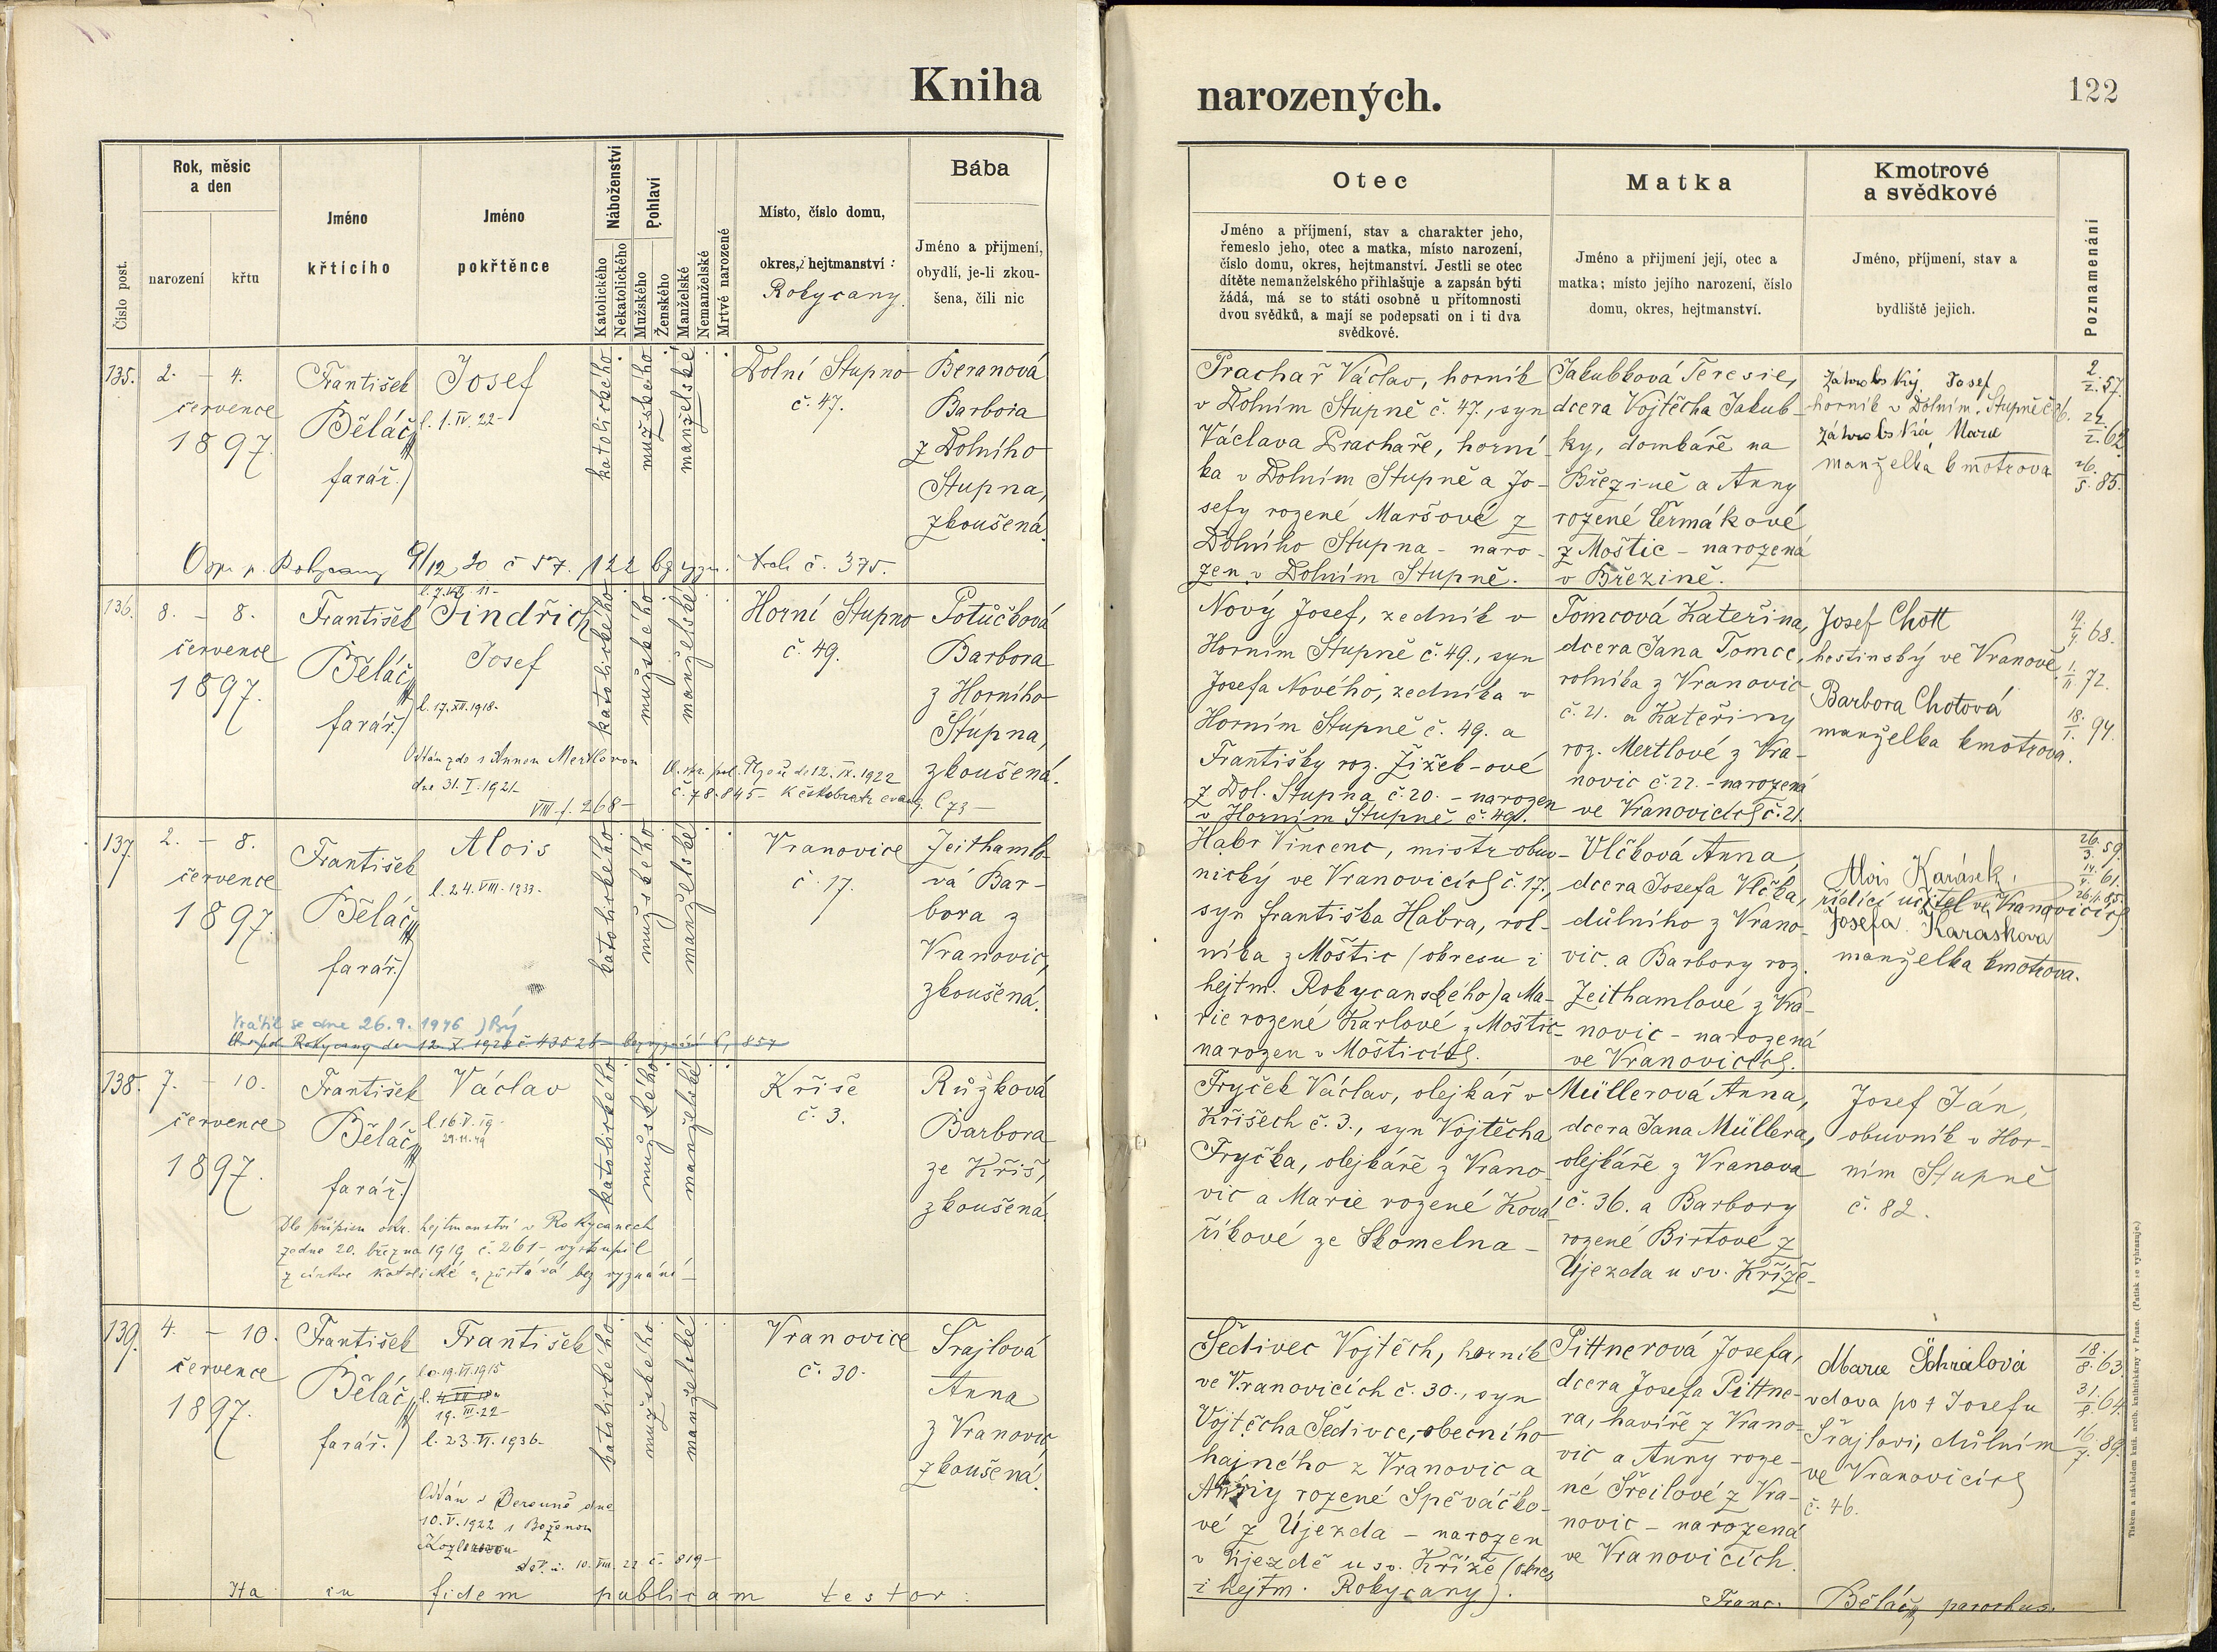 Kniha
narozených.
122
Číslo post.
Rok, měsic
a den
narození
křtu
Jméno
křtícího
Jméno
pokřtěnce
Náboženství
Katolického
Nekatolického
Pohlaví
Mužského
Ženského
Manželské
Nemanželské
Mrtvé narozené
Místo, číslo domu,
okres, hejtmanství:
Rokycany.
Bába
Jméno a přijmení,
obydlí, je-li zkou-
šena, čili nic
Otec
Jméno a příjmení, stav a charakter jeho,
řemeslo jeho, otec a matka, místo narození,
číslo domu, okres, hejtmanství. Jestli se otec
dítěte nemanželského přihlašuje a zapsán býti
žádá, má se to státi osobně u přítomnosti
dvou svědků, a mají se podepsati on i ti dva
svědkové.
Matka
Jméno a přijmení její, otec a
matka; místo jejího narození, číslo
domu, okres, hejtmanství.
Kmotrové
a svědkové
Jméno, příjmení, stav a
bydliště jejich.
Poznamenání
135.
2. – 4.
července
1897.
František
Běláč,
farář.
Josef
l. 1. IV. 22-
katolického
mužského
manželské
Dolní Stupno
č. 47.
Beranová
Barbora
z Dolního
Stupna,
zkoušená.
Rokycany 9/12 20 č 57. 122 bez vyzn. č. 375.
Prachař Václav, horník
v Dolním Stupně č. 47., syn
Václava Prachaře, horní-
ka v Dolním Stupně a Jo-
sefy rozené Maršové z
Dolního Stupna – naro-
zen v Dolním Stupně.
Jakubková Teresie,
dcera Vojtěcha Jakub-
ky, dombaře na
Březině a Anny
rozené Čermákové
z Moštic – narozená
v Březině.
Josef
horník v Dolním Stupně č.
Marie
manželka kmotrova
2/2. 57.
24/2. 62
26/5. 85.
136.
8. – 8.
července
1897.
František
Běláč,
farář.
Jindřich
Josef
l. 17. XII. 1918-
Oddán zde s Annou Mertlovou
dne 31. I. 1921-
VIII. f. 268-
katolického
mužského
manželské
O. spr. pol. Plzeň de 12. IX. 1922
č. 78.845- k českobratr. evang. C 73-
Horní Stupno
č. 49.
Potůčková
Barbora
z Horního
Stupna,
zkoušená.
Nový Josef, zedník v
Horním Stupně č. 49., syn
Josefa Nového, zedníka v
Horním Stupně č. 49. a
Františky roz. Žižek-ové
z Dol. Stupna č. 20. – narozen
v Horním Stupně č. 49.
Tomcová Kateřina,
dcera Jana Tomce,
rolníka z Vranovic
č. 21. a Kateřiny
roz. Mertlové z Vra-
novic č. 22. – narozená
ve Vranovicích č. 21.
Josef Chott
hostinský ve Vranově.
Barbora Chotová
manželka kmotrova.
19/9 68.
1./11 72.
18./1. 94.
137.
2. – 8.
července
1897.
František
Běláč,
farář.
Alois
l. 24. VIII. 1933-
katolického
mužského
manželské
Vrátil se dne 26. 9. 1946
Rokycany de 12. X. 1928 č 43528 bez vyznání 857
Vranovice
č. 17.
Jeithamlo-
vá Bar-
bora z
Vranovic,
zkoušená.
Habr Vincenc, mistr obuv-
nický ve Vranovicích č. 17.,
syn Františka Habra, rol-
níka z Moštic (okresu i
hejtm. Rokycanského) a Ma-
rie rozené Karlové z Moštic-
narozen v Mošticích.
Vlčková Anna,
dcera Josefa Vlčka,
důlního z Vrano-
vic a Barbory roz.
Jeithamlové z Vra-
novic – narozená
ve Vranovicích.
Alois Karásek,
řídící učitel ve Vranovicích
Josefa Karaskova
manželka kmotrova.
26./3. 59.
14./4. 61.
138.
7. – 10.
července
1897.
František
Běláč,
farář.
Václav
l. 16. V. 19-
29. 11. 49
katolického
mužského
manželské
Dle přípisu okr. hejtmanství v Rokycanech
ze dne 20. března 1919 č. 261- vystoupil
z církve katolické a zůstává bez vyznání-
Kříše
č. 3.
Růžková
Barbora
ze Kříš,
zkoušená.
Fryček Václav, olejkář v
Kříších č. 3., syn Vojtěcha
Fryčka, olejkáře z Vrano-
vic a Marie rozené Ková-
říkové ze Skomelna –
Müllerová Anna,
dcera Jana Müllera,
olejkáře z Vranova
č. 36. a Barbory
rozené Birtové z
Újezda u sv. Kříže-
Josef Ján,
obuvník v Hor-
ním Stupně
č. 82.
139.
4. – 10.
července
1897.
František
Běláč,
farář.
František
19. VI. 1915
19. III. 22-
l. 23. VI. 1936-
Oddán v Berouně dne
10. V. 1922 s Boženou
katolického
mužského
manželské
10. VIII. 22 č. 819-
Vranovice
č. 30.
Šrajlová
Anna
z Vranovic,
zkoušená.
Šedivec Vojtěch, horník
ve Vranovicích č. 30., syn
Vojtěcha Šedivce, obecního
hajného z Vranovic a
Anny rozené Spěváčko-
vé z Újezda – narozen
v Újezdě u sv. Kříže (okres
i hejtm. Rokycany).
Pittnerová Josefa,
dcera Josefa Pittne-
ra, havíře z Vrano-
vic a Anny roze-
né Šreilové z Vra-
novic – narozená
ve Vranovicích.
Marie Schrálová
vdova po † Josefu
Šrajlovi, důlním
ve Vranovicích
č. 46.
18./8. 63.
31./8. 64.
16./7. 89.
Ita in fidem publicam testor:
Franc. Běláč, parochus.
Tiskem a nákladem kníž. arcib. knihtiskárny v Praze. (Patisk se vyhrazuje.)